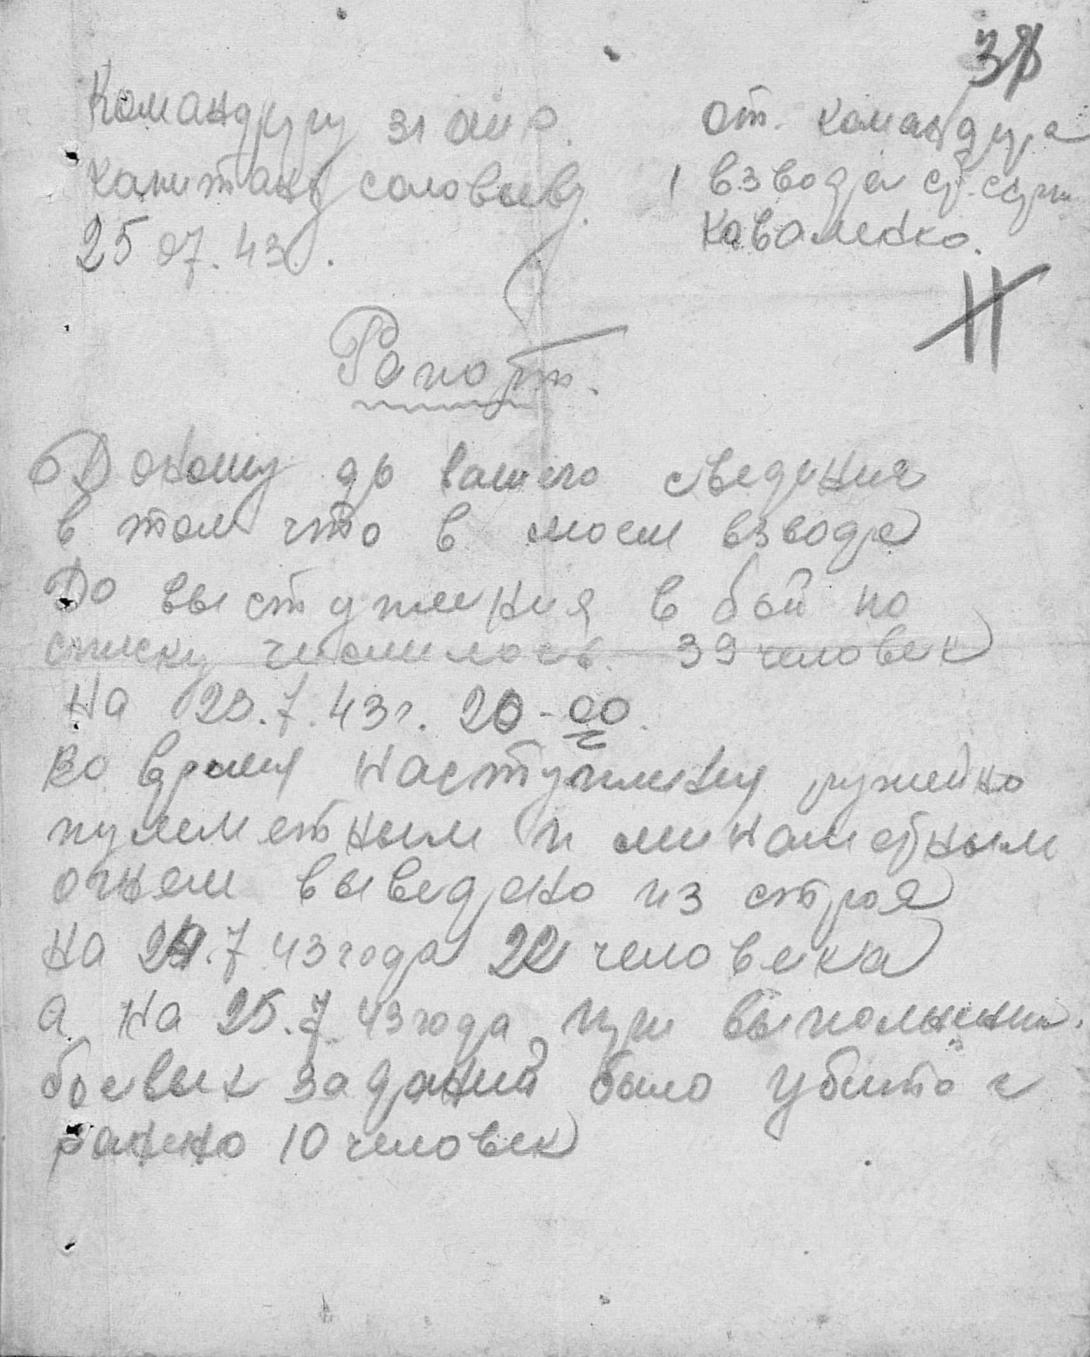 38
Командиру 31 ошр. от командира
капитану Соловьеву. 1 взвода ст. серж
25 07.43. Коваленко.
Рапорт.
Доношу до вашего сведения
в том что в моем взводе
До выступления в бой по
списку числилось 39 человек
на 23.7.43г. 20-00.
Во время наступления ружейно
пулеметным и минометным
огнем выведено из строя
на 24.7 43 года 22 человека
а на 25.7 43 года при выполнении
боевых заданий было убито и
ранено 10 человек